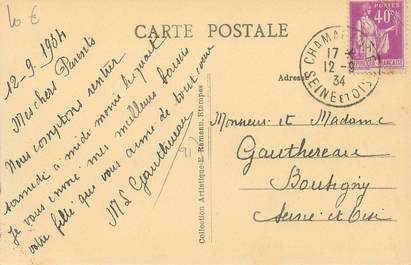 10 €
CARTE POSTALE
POSTES
40c
CHAMA
17
12-9
34
SEINE ET OISE
12-9-1934
Mes chers Parents
Nous comptons rentrer
samedi à midi moins le quart
Je vous envoie mes meilleurs baisers
votre fille qui vous aime de tout cœur
M L Gauthereau
Adresse
Collection Artistique-E. Rameau, Etampes
Monsieur et Madame
Gauthereau
Boutigny
Seine et Oise